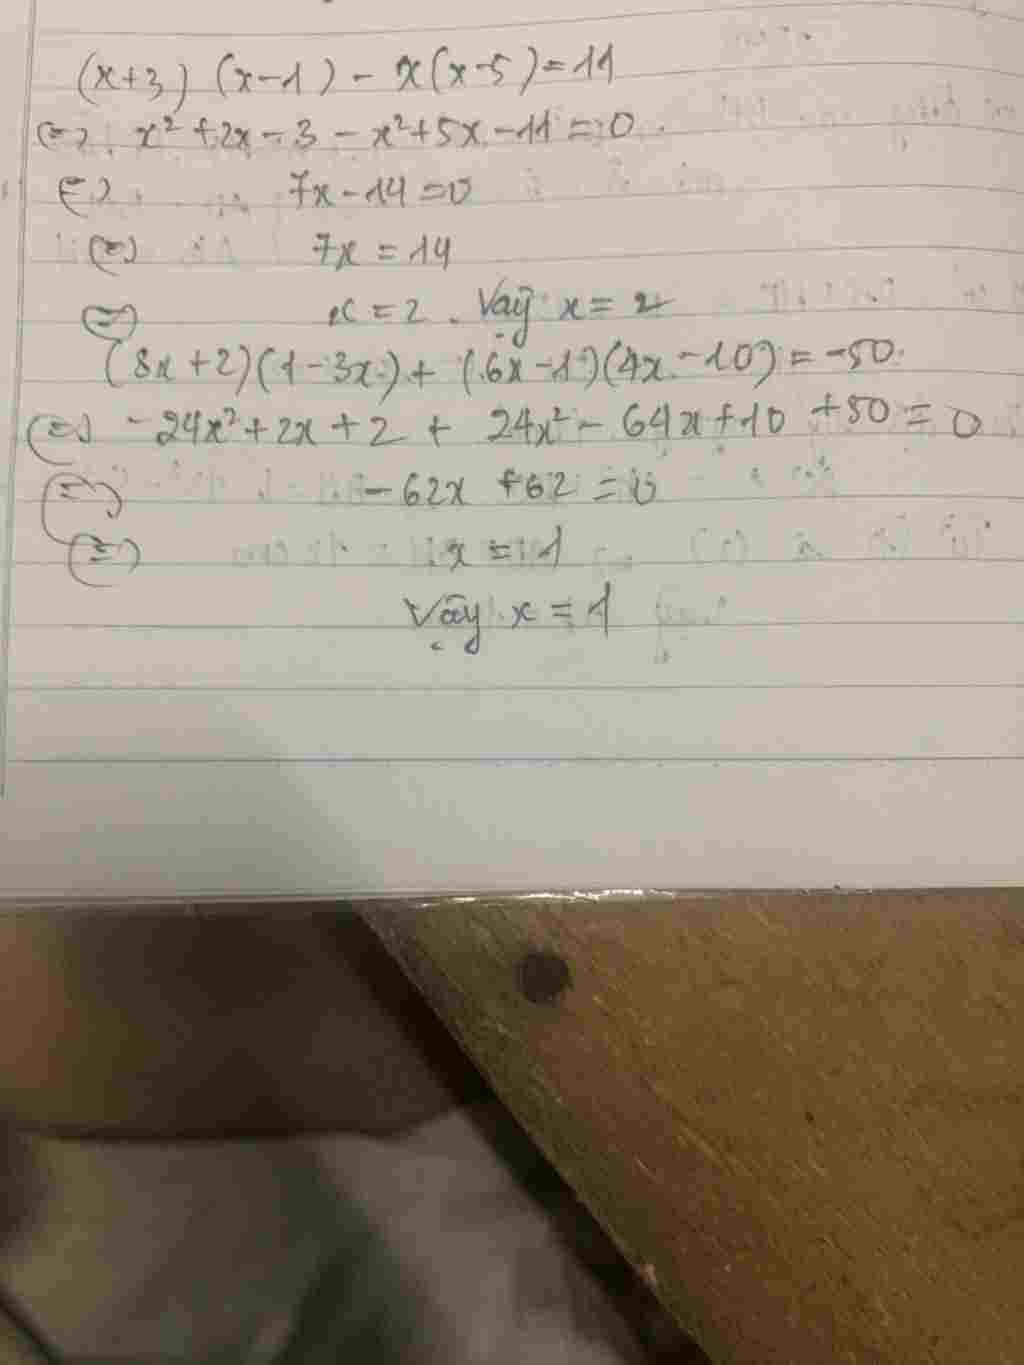 (x+3) (x-1) - x(x-5) = 11
(=) x² + 2x - 3 - x² + 5x - 11 = 0.
(=) 7x - 14 = 0
(=) 7x = 14
(=) x = 2. Vậy x = 2
(8x+2)(1-3x) + (6x-1)(4x-10) = -50.
(=) -24x² + 2x + 2 + 24x² - 64x + 10 + 50 = 0
(=) -62x + 62 = 0
(=) x = 1
Vậy x = 1